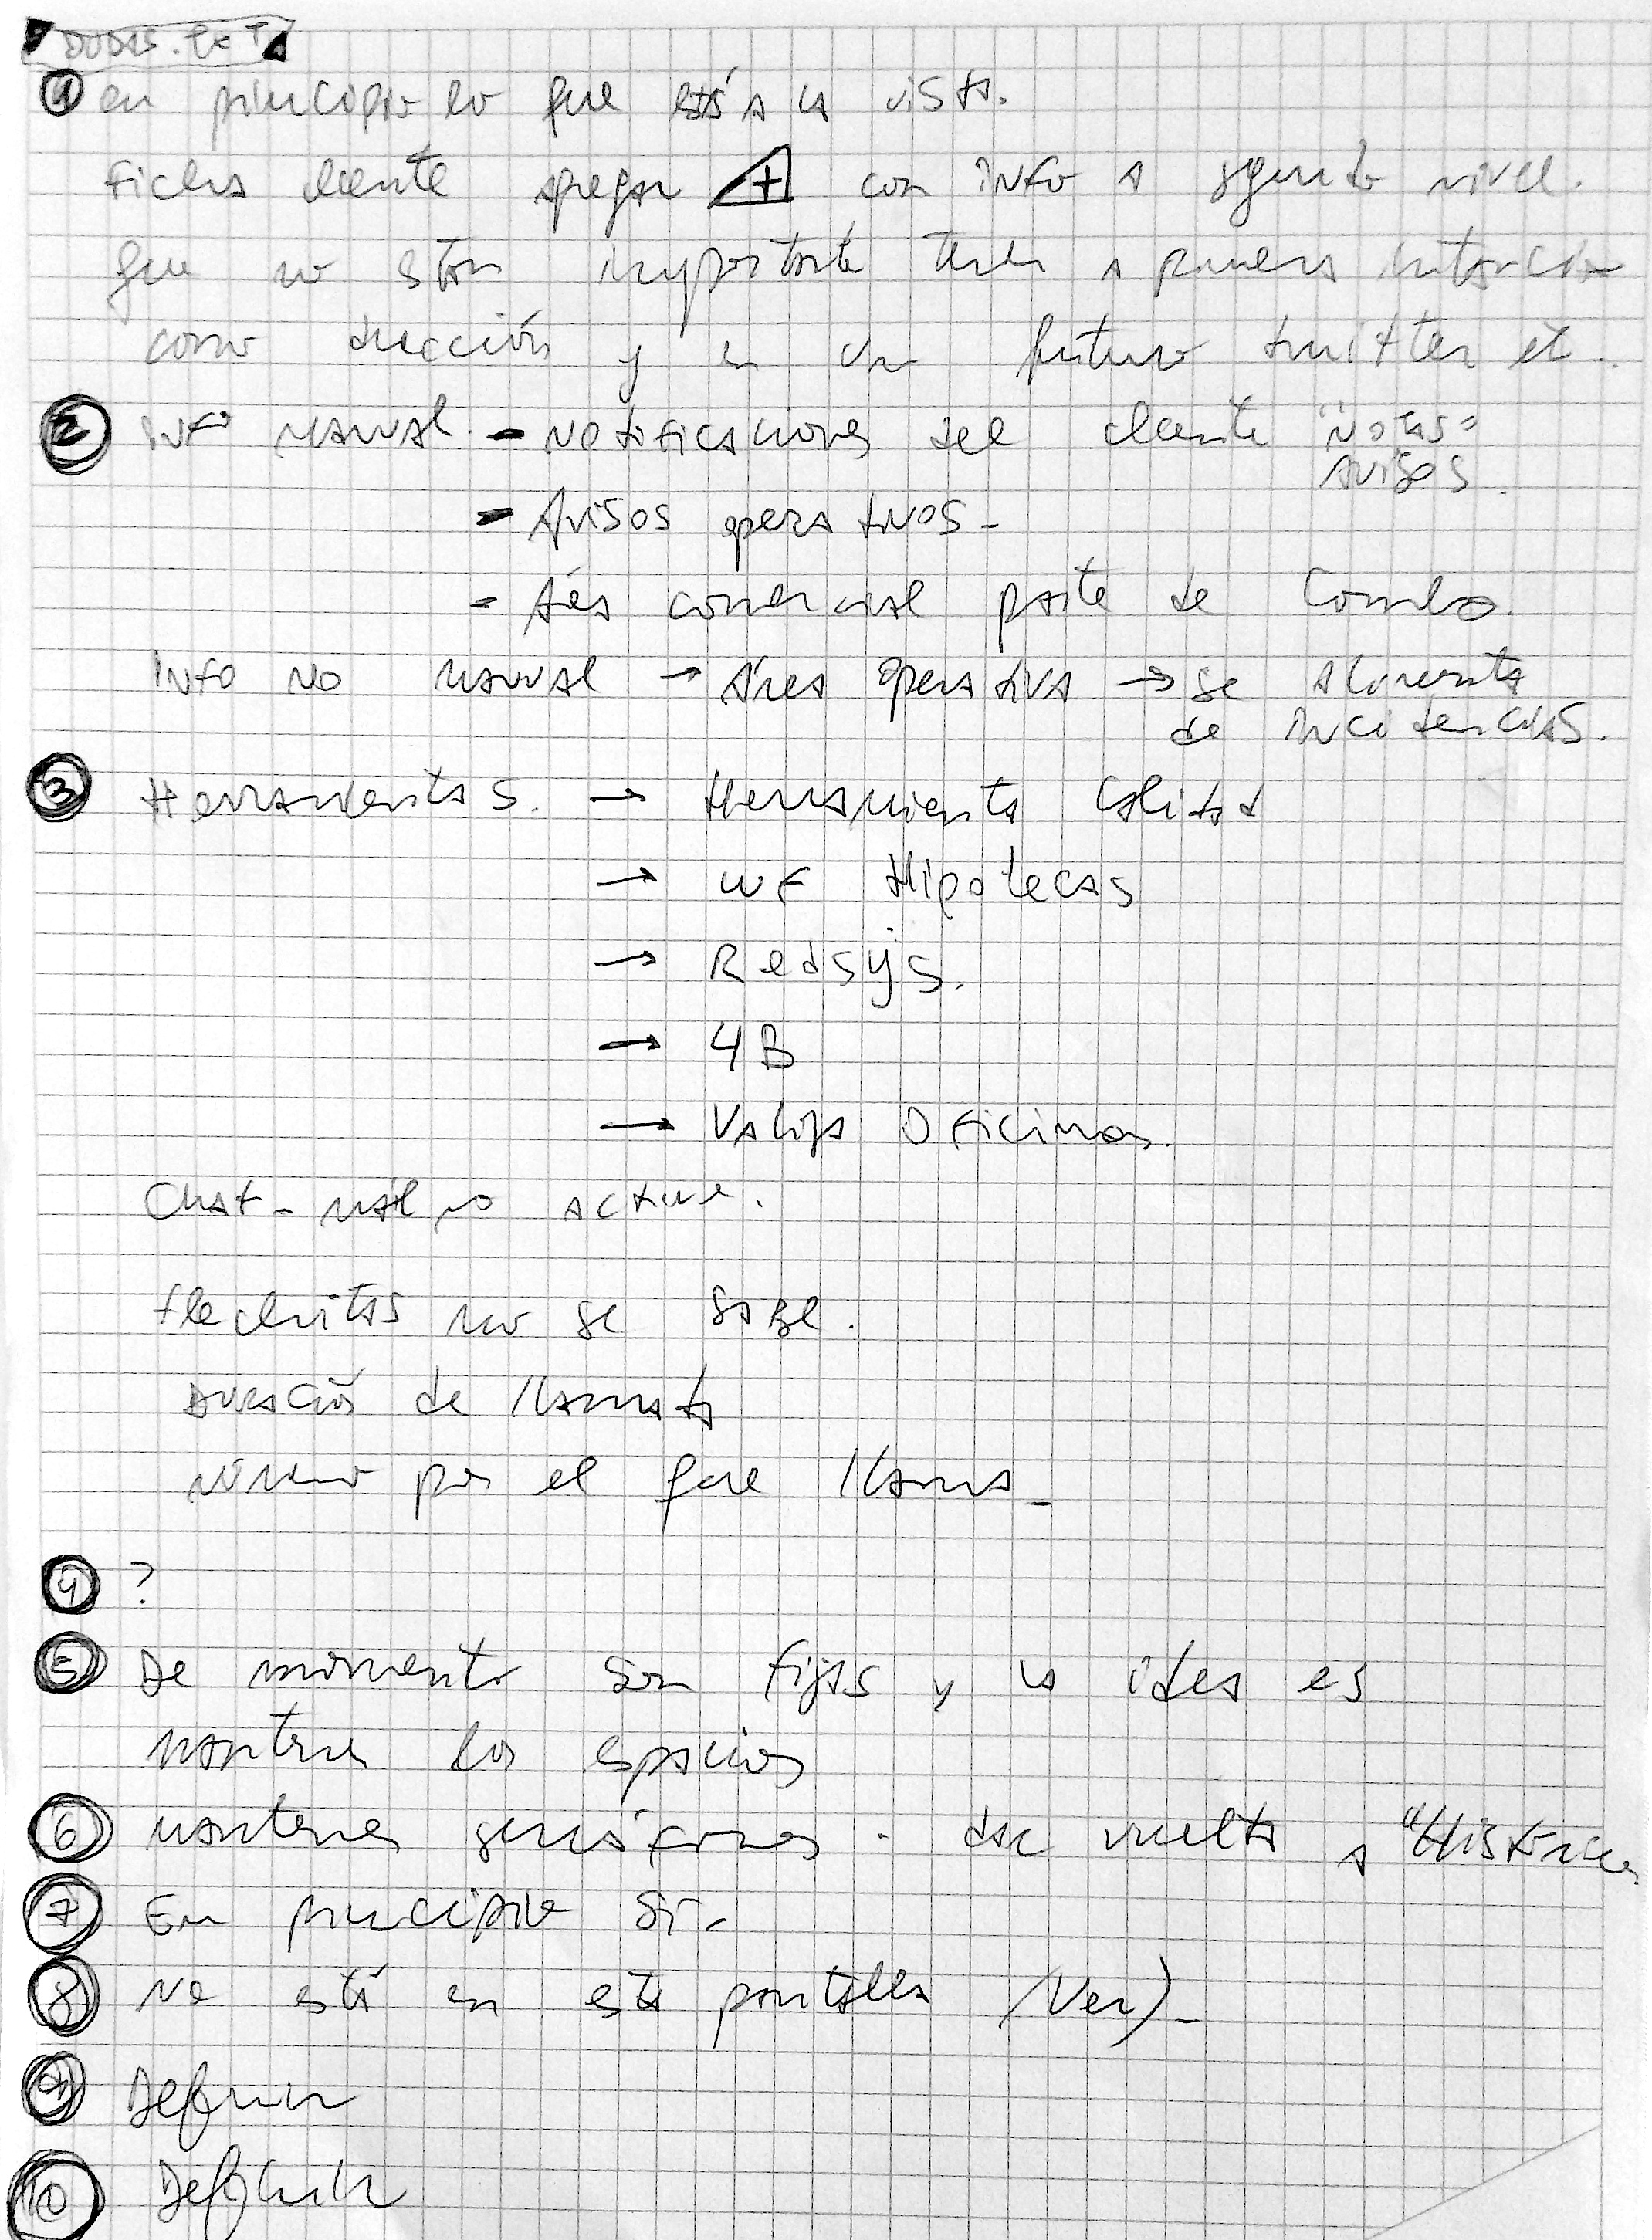 DUDAS.
① en principio lo que está a la vista.
Ficha cliente agregar + con info a segundo nivel.
que no es tan importante tener a primera instancia
como dirección y en un futuro twitter etc.
② Info manual. - Notificaciones del cliente "notas"
avisos.
- Avisos operativos -
- Área comercial parte de Combo.
Info no manual → Área operativa → se alimenta
de incidencias.
③ Herramientas. → Herramienta Calidad
→ WF Hipotecas
→ Redsys.
→ 4B
→ Valija Oficinas.
Chat - mail no active.
flechitas no se sabe.
Duración de llamada
número por el que llama -
④ ?
⑤ De momento son fijas y la idea es
mantener los espacios
⑥ mantener . dar vuelta a
⑦ En principio sí -
⑧ No está en esta pantalla (Ver) -
⑨ Definir
⑩ Definir